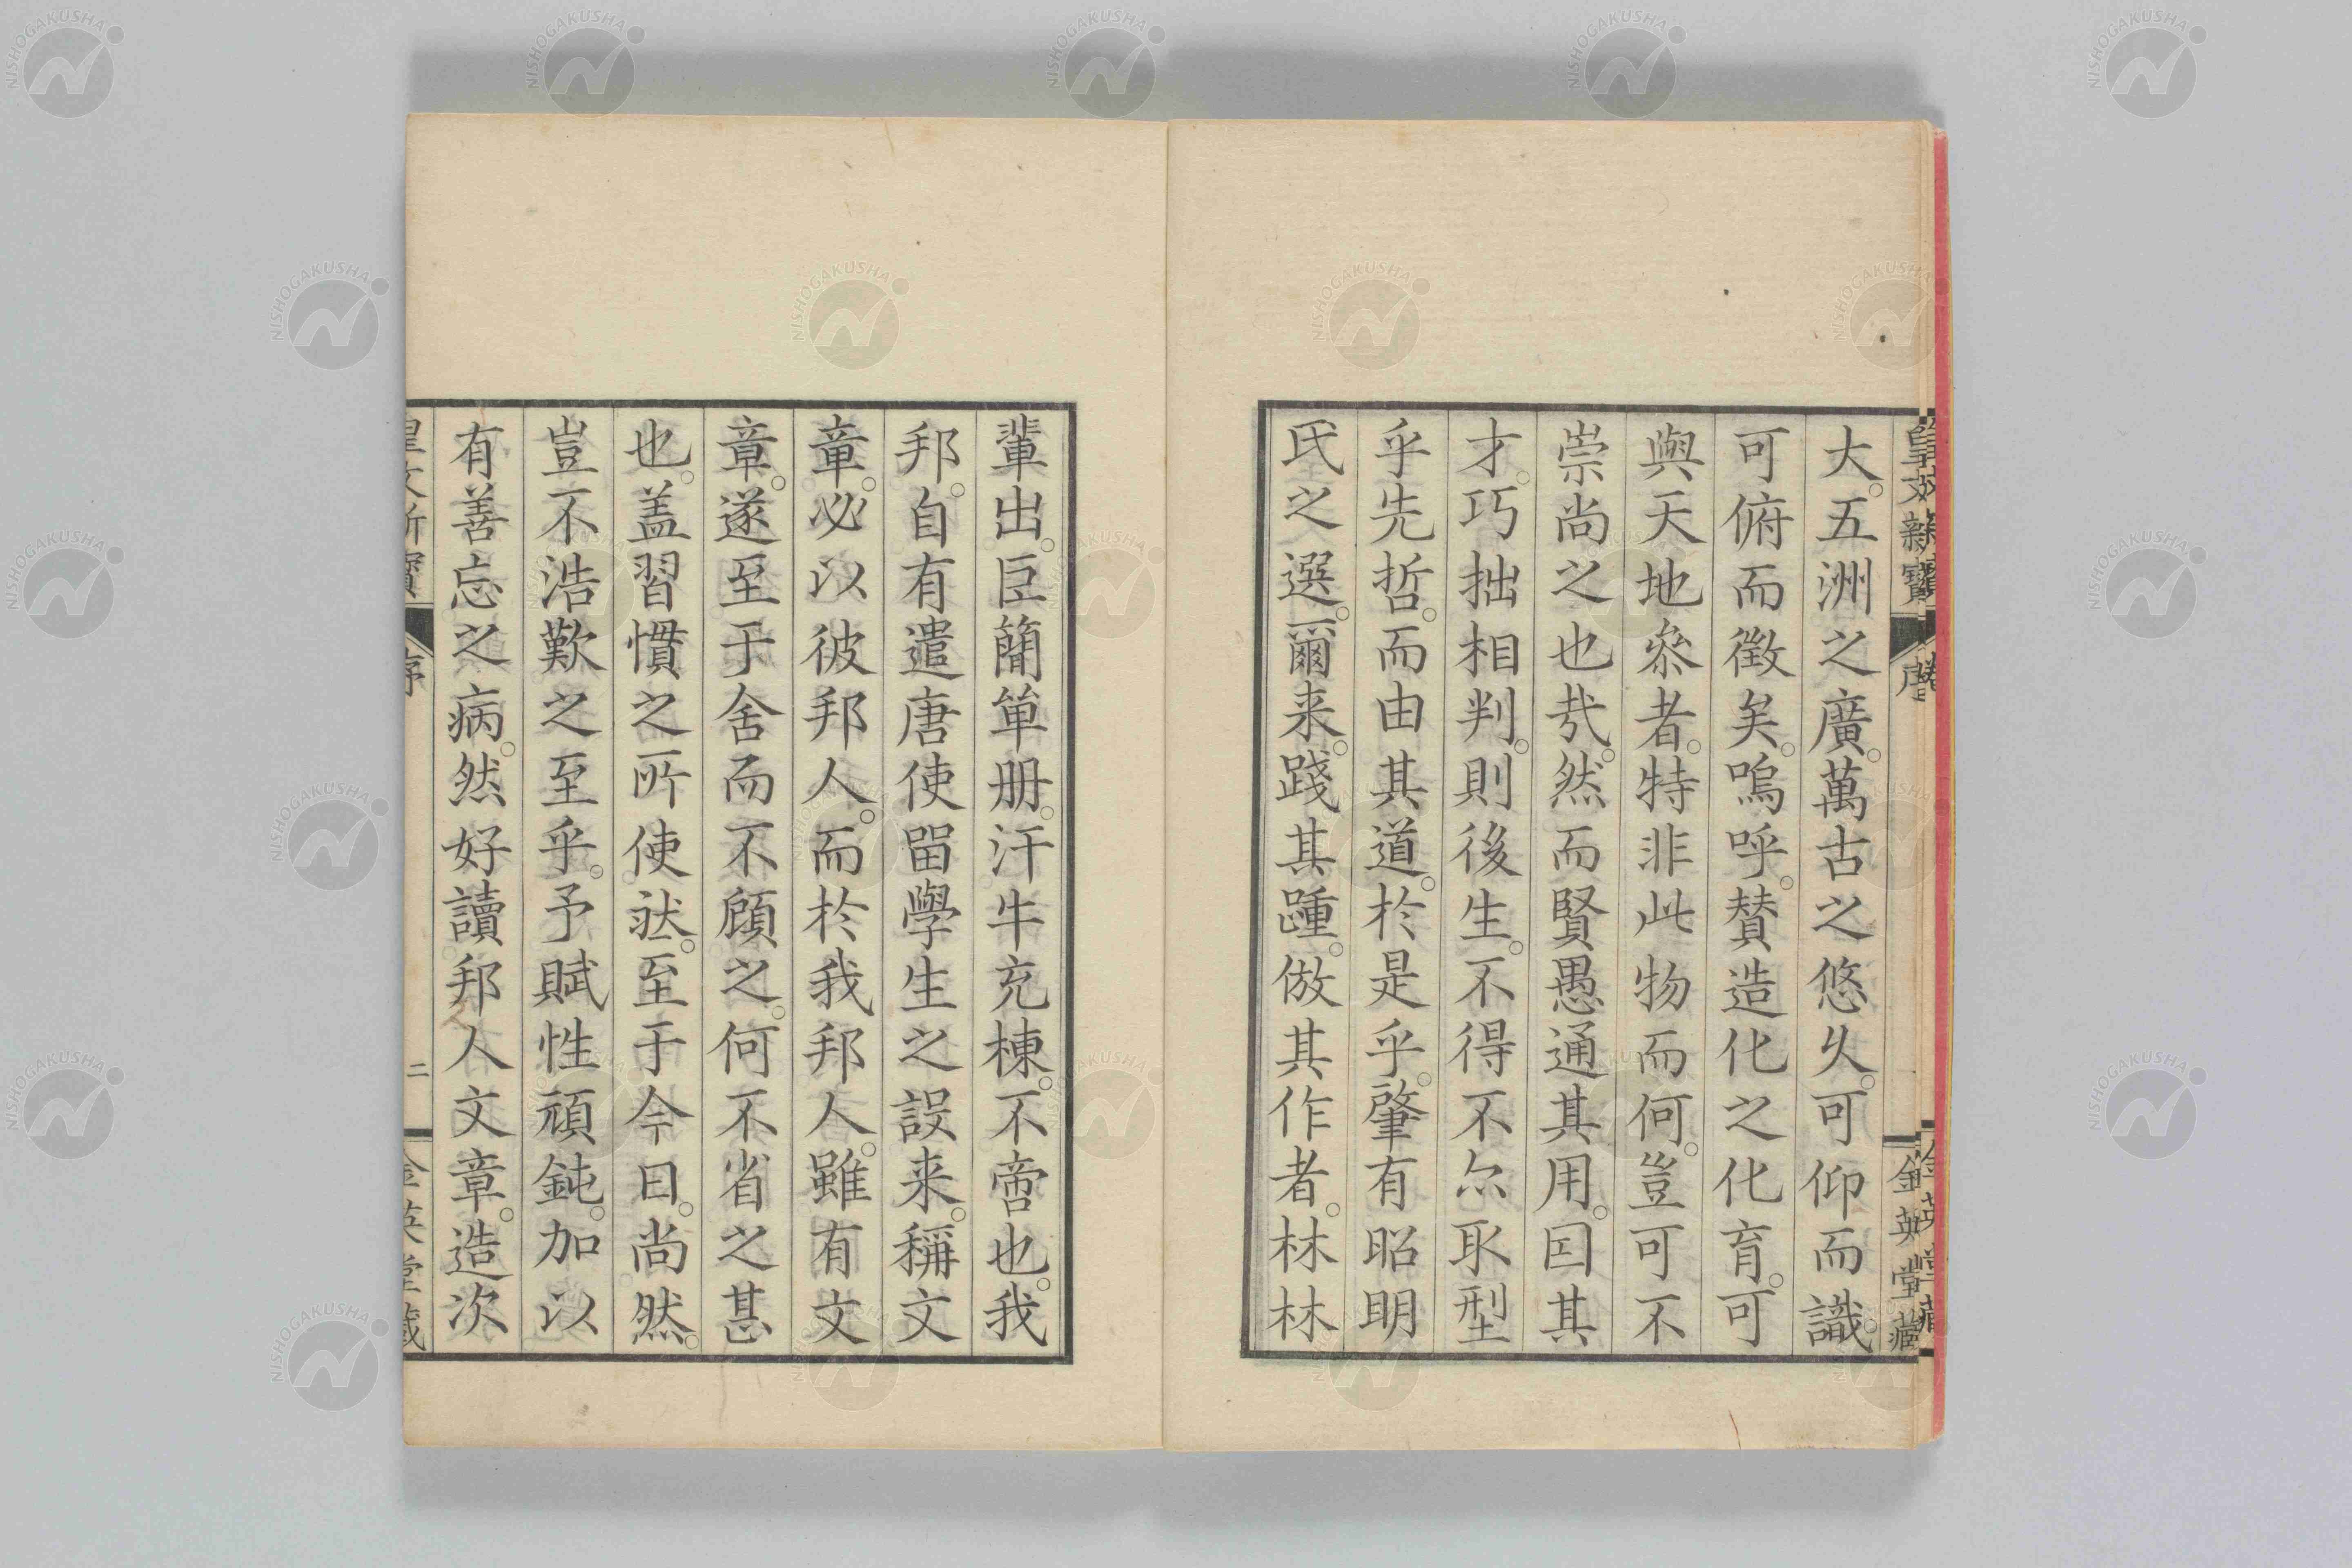 皇文新寶
序
金英堂藏
大。五洲之廣。萬古之悠久。可仰而識。
可俯而徴矣。嗚呼。賛造化之化育。可
與天地叅者。特非此物而何。豈可不
崇尚之也哉。然而賢愚通其用。囙其
才。巧拙相判。則後生。不得不尒取型
乎先哲。而由其道。於是乎。肇有昭明
氏之選。爾来。踐其踵。倣其作者。林林
輩出。臣簡単册。汗牛充棟。不啻也。我
邦。自有遣唐使留學生之設来。稱文
章。必以彼邦人。而於我邦人。雖有文
章。遂至于舍而不顧之。何不省之甚
也。盖習慣之所使然。至于今日。尚然。
豈不浩歎之至乎。予賦性頑鈍。加以
有善忘之病。然好讀邦人文章。造次
皇文新寶
序
二
金英堂藏
NISHOGAKUSHA